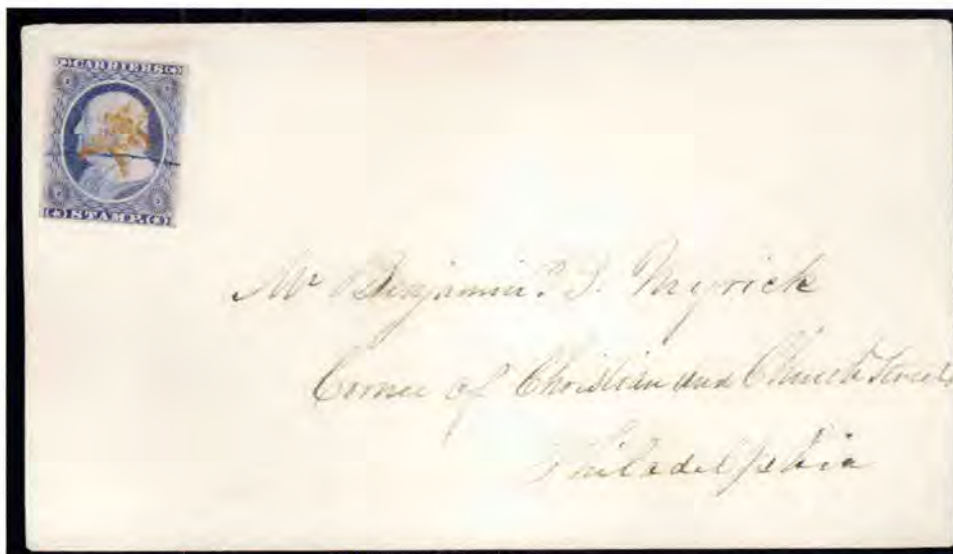 CARRIERS
STAMP.
Mr Benjamin. T. Myrick
Corner of Christian and Church Streets
Philadelphia